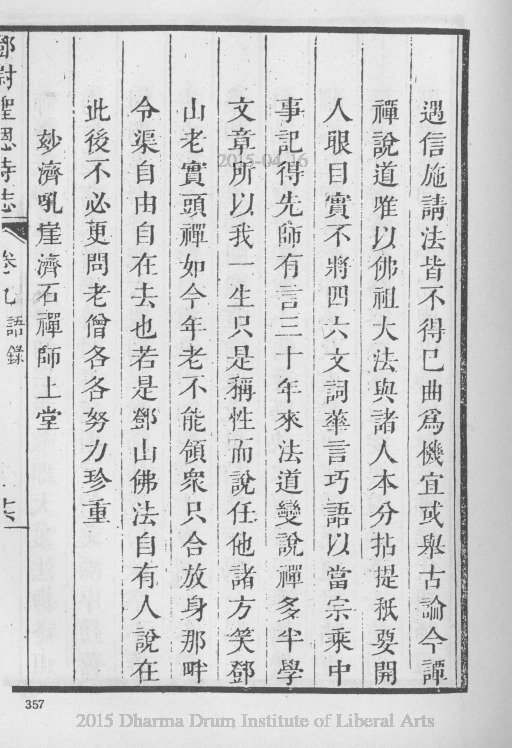 遇信施請法皆不得巳曲爲機宜或舉古論今譚
禪說道唯以佛祖大法與諸人本分拈提秖要開
人眼目實不將四六文詞華言巧語以當宗乘中
事記得先師有言三十年來法道變說禪多半學
文章所以我一生只是稱性而說任他諸方笑鄧
山老實頭禪如今年老不能領衆只合放身那畔
令渠自由自在去也若是鄧山佛法自有人說在
此後不必更問老僧各各努力珍重
玅濟吼崖濟石禪師上堂
鄧尉聖恩寺志 卷九 語錄
357
2015-04-16
2015 Dharma Drum Institute of Liberal Arts